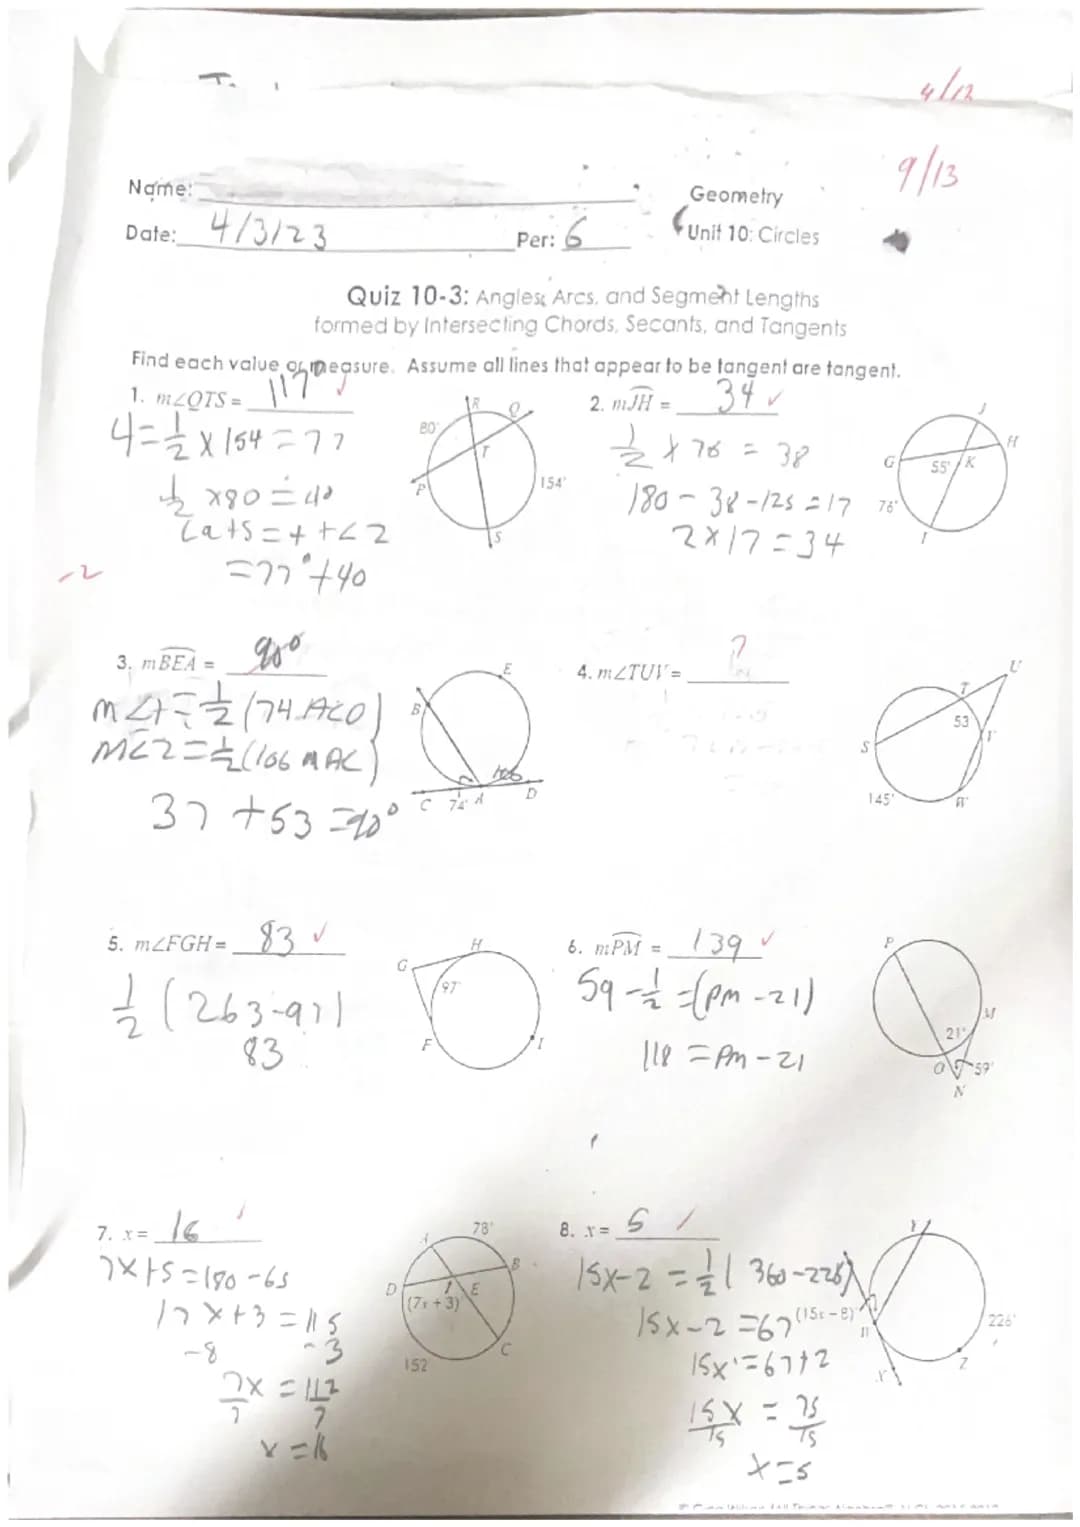 4/12
9/13
Name:
Geometry
Date: 4/3/23 Per: 6
Unit 10: Circles
Quiz 10-3: Angles, Arcs, and Segment Lengths
formed by Intersecting Chords, Secants, and Tangents
Find each value or measure. Assume all lines that appear to be tangent are tangent.
1. m∠QTS = 117° ✓
4 = 1/2 x 154 = 77
1/2 x 80 = 40
= 77° + 40
-2
R Q 80° T P 154° S
2. mJH = 34 ✓
1/2 x 76 = 38
180 - 38 - 125 = 17
2 x 17 = 34
J H G 55° K 76° I
3. mBEA = 90°
37 + 53 = 90°
E B 106 C 74° A D
4. m∠TUV = ?
U T 53 V S 145° W
5. m∠FGH = 83 ✓
1/2 (263-97)
83
H G 97° F I
6. mPM = 139 ✓
59 - 1/2 = (PM - 21)
118 = PM - 21
P M 21° O 59° N
7. x = 16
7x+5 = 180 - 65
17x+3 = 115
-8 -3
7x = 112
7 7
x = 16
A 78° B D (7x + 3)° E 152 C
8. x = 5
15x-2 = 1/2 (360-226)
15x-2 = 67
15x = 67+2
15x = 75
15 15
x = 5
Y (15x - 8)° 226° Z